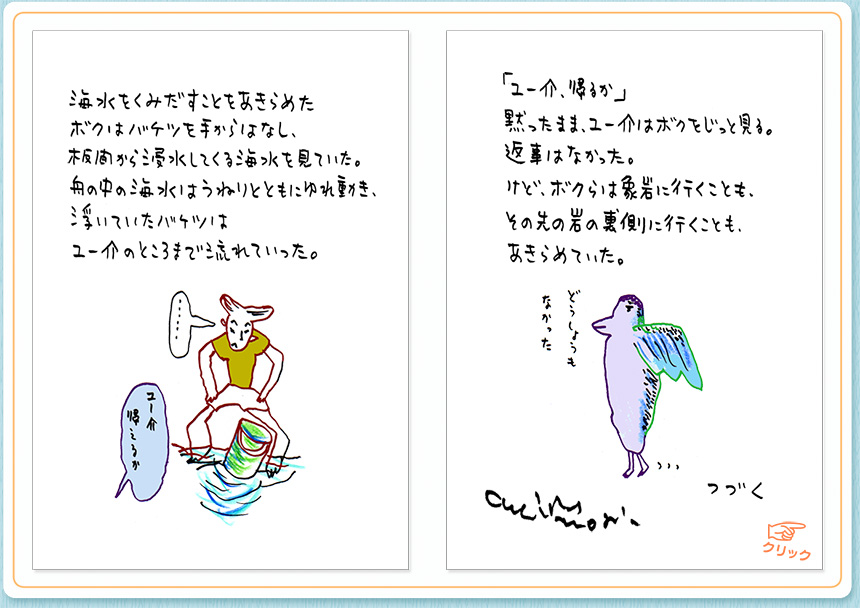 海水をくみだすことをあきらめた
ボクはバケツを手からはなし、
板間から浸水してくる海水を見ていた。
舟の中の海水はうねりとともにゆれ動き、
浮いていたバケツは
ユー介のところまで流れていった。
……
ユー介
帰えるか
「ユー介、帰るか」
黙ったまま、ユー介はボクをじっと見る。
返事はなかった。
けど、ボクらは象岩に行くことも、
その先の岩の裏側に行くことも、
あきらめていた。
どうしようも
なかった
つづく
クリック